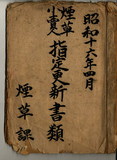 昭和十六年四月
煙草
小売人
指定更新書類
煙草課